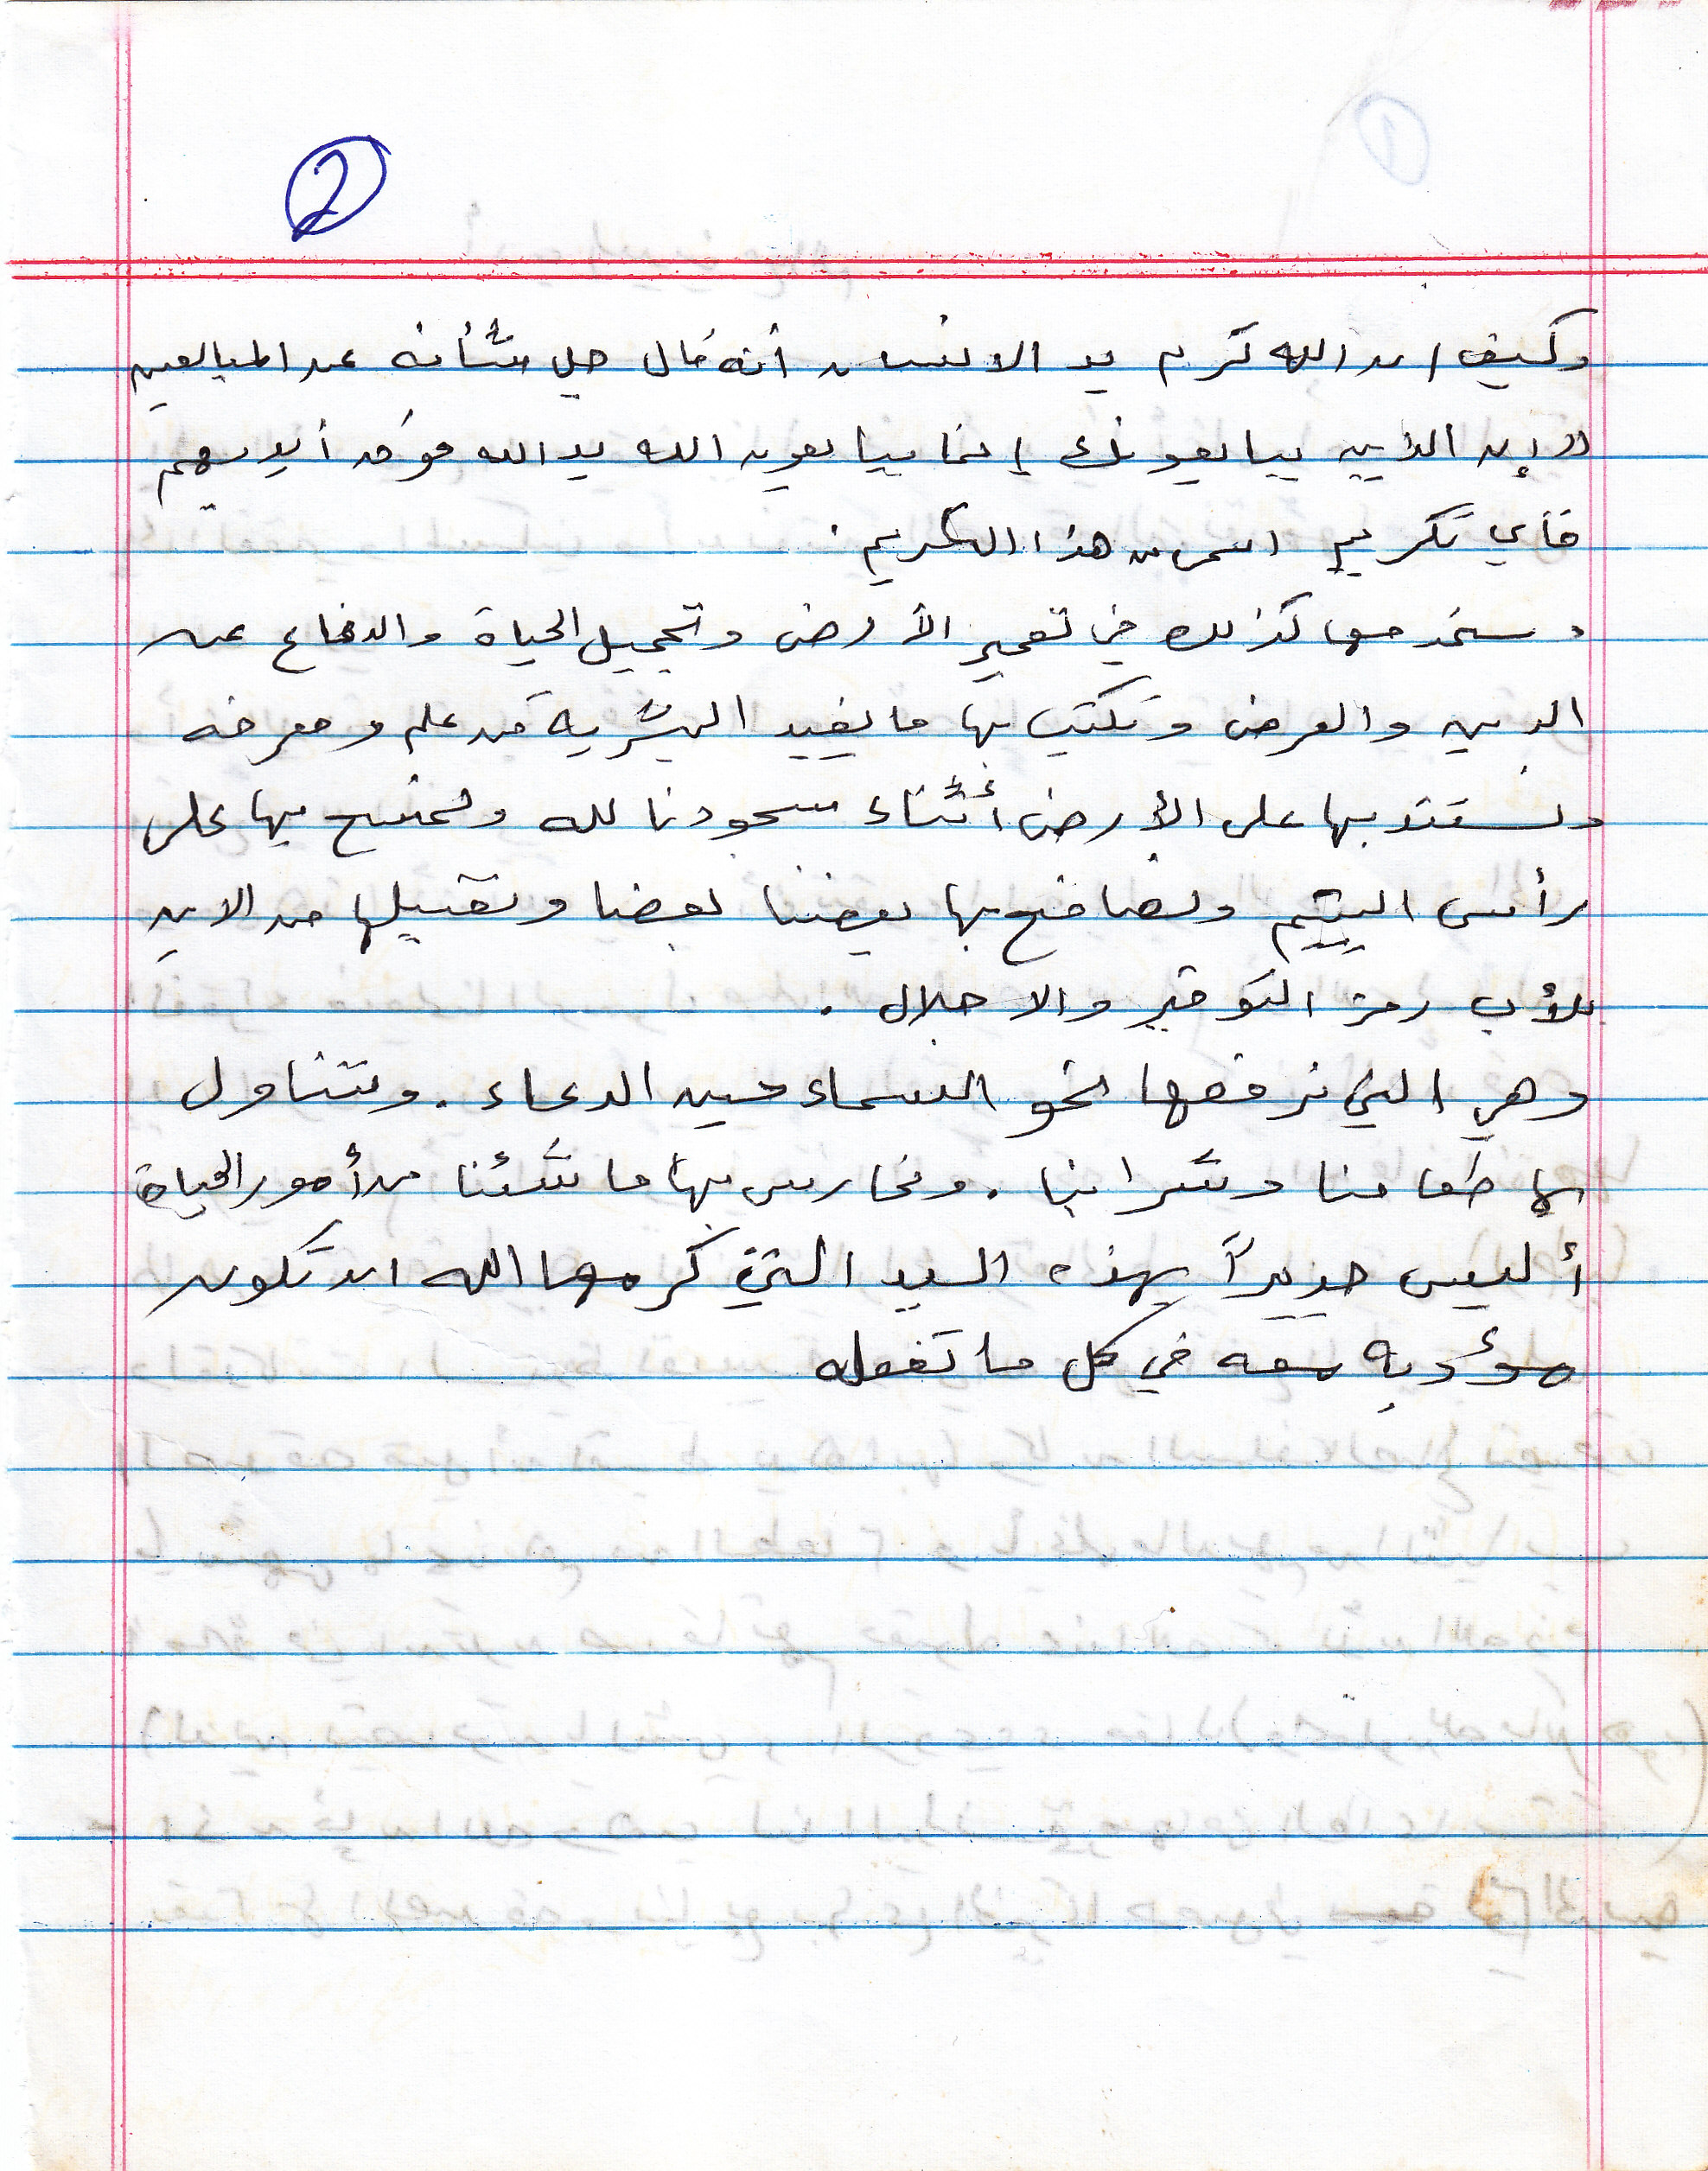 2
وكيف ان الله كرم يد الانسان أنه قال جل شأنه عن المبايعين
"إن الذين يبايعونك إنما يبايعون الله يد الله فوق أيديهم
فأي تكريم اسمى من هذا التكريم .
ونستخدمها كذلك في تعمير الأرض وتجميل الحياة والدفاع عن
الدين والعرض ونكتب بها ما يفيد البشرية من علم ومعرفه
ونستند بها على الأرض أثناء سجودنا لله ونمسح بها على
رأس اليتيم ونصافح بها بعضنا بعضا وتقبيلها من الابن
للأب رمز التوقير والاجلال .
وهي التي نرفعها نحو السماء حين الدعاء . ونتناول
بها طعامنا وشرابنا . ونمارس بها ما شئنا من أمور الحياة
أليس جديراً بهذه اليد التي كرمها الله ان تكون
مؤدبه في كل ما تفعله